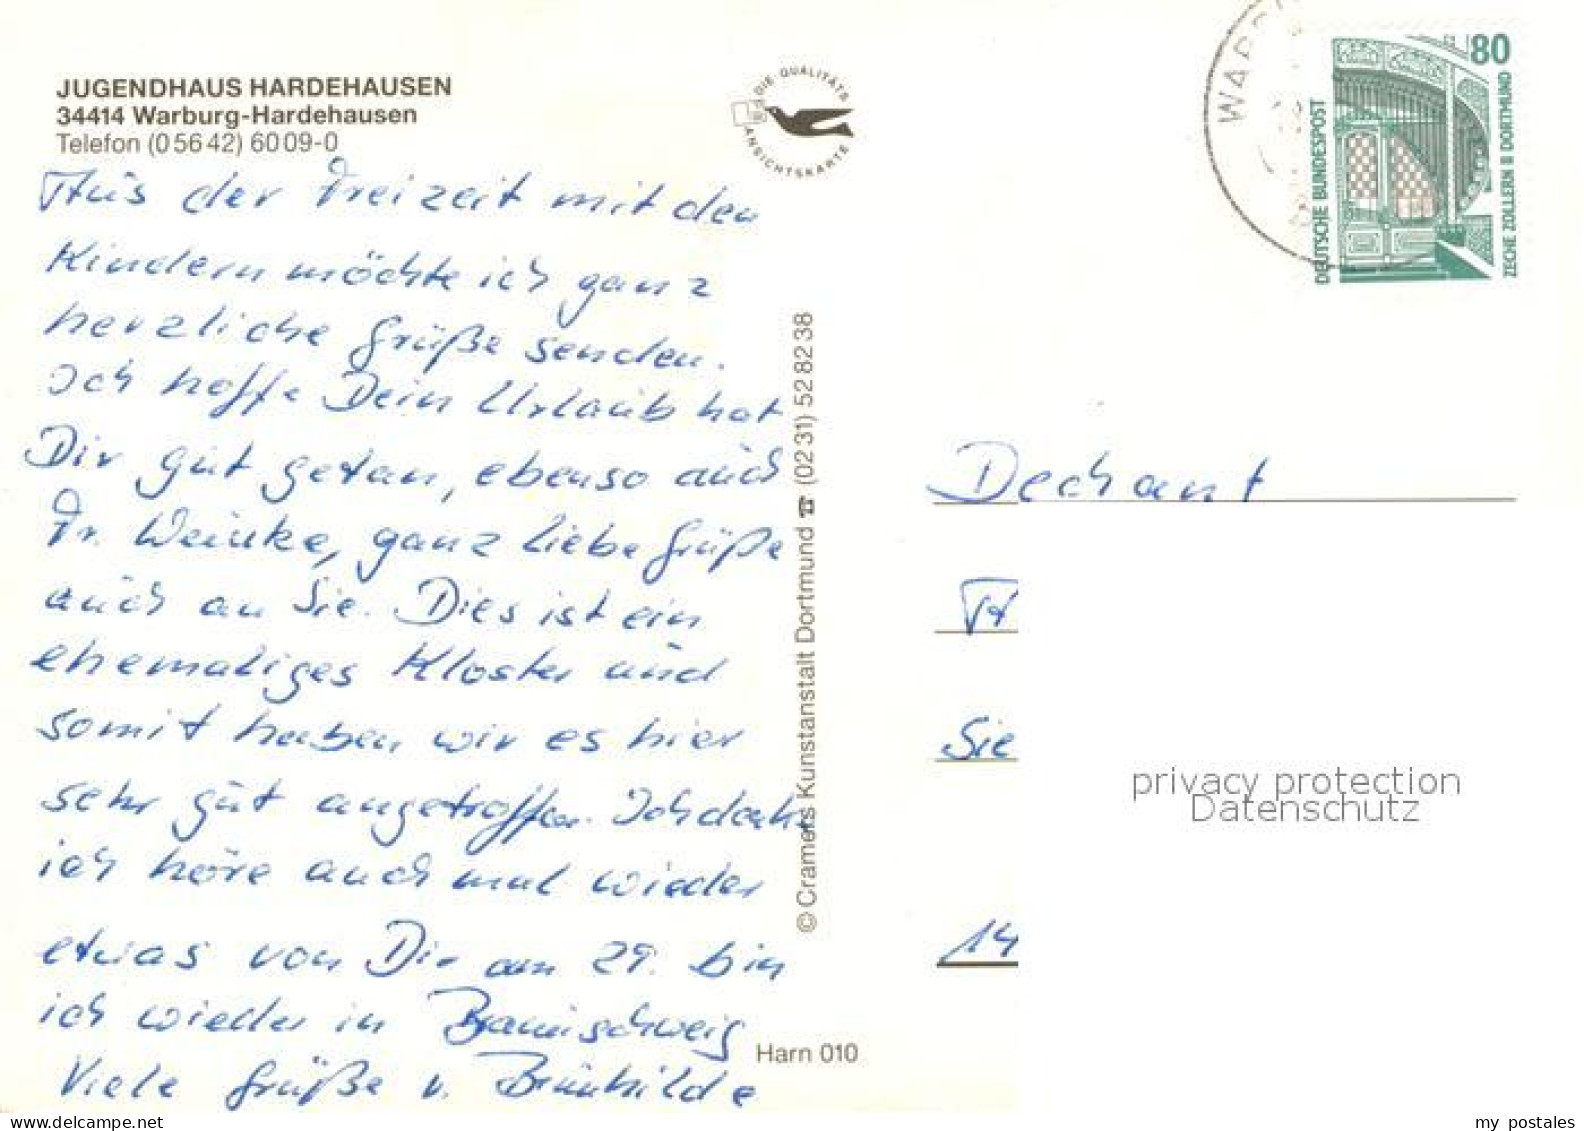 JUGENDHAUS HARDEHAUSEN
34414 Warburg-Hardehausen
Telefon (05642) 6009-0
Aus der Freizeit mit den
Kindern möchte ich ganz
herzliche Grüße senden.
Ich hoffe Dein Urlaub hat
Dir gut getan, ebenso auch
Fr. ganz liebe Grüße
auch an Sie. Dies ist ein
ehemaliges Kloster und
somit haben wir es hier
sehr gut angetroffen. Ich denke
ich höre auch mal wieder
etwas von Dir am 29. bin
ich wieder in Braunschweig
Viele Grüße v. Brünhilde
DIE QUALITÄTS
ANSICHTSKARTE
© Cramers Kunstanstalt Dortmund ☎ (0231) 528238
Harn 010
WARB
80
DEUTSCHE BUNDESPOST
ZECHE ZOLLERN II DORTMUND
Dechant
Sie
14
privacy protection
Datenschutz
my postales